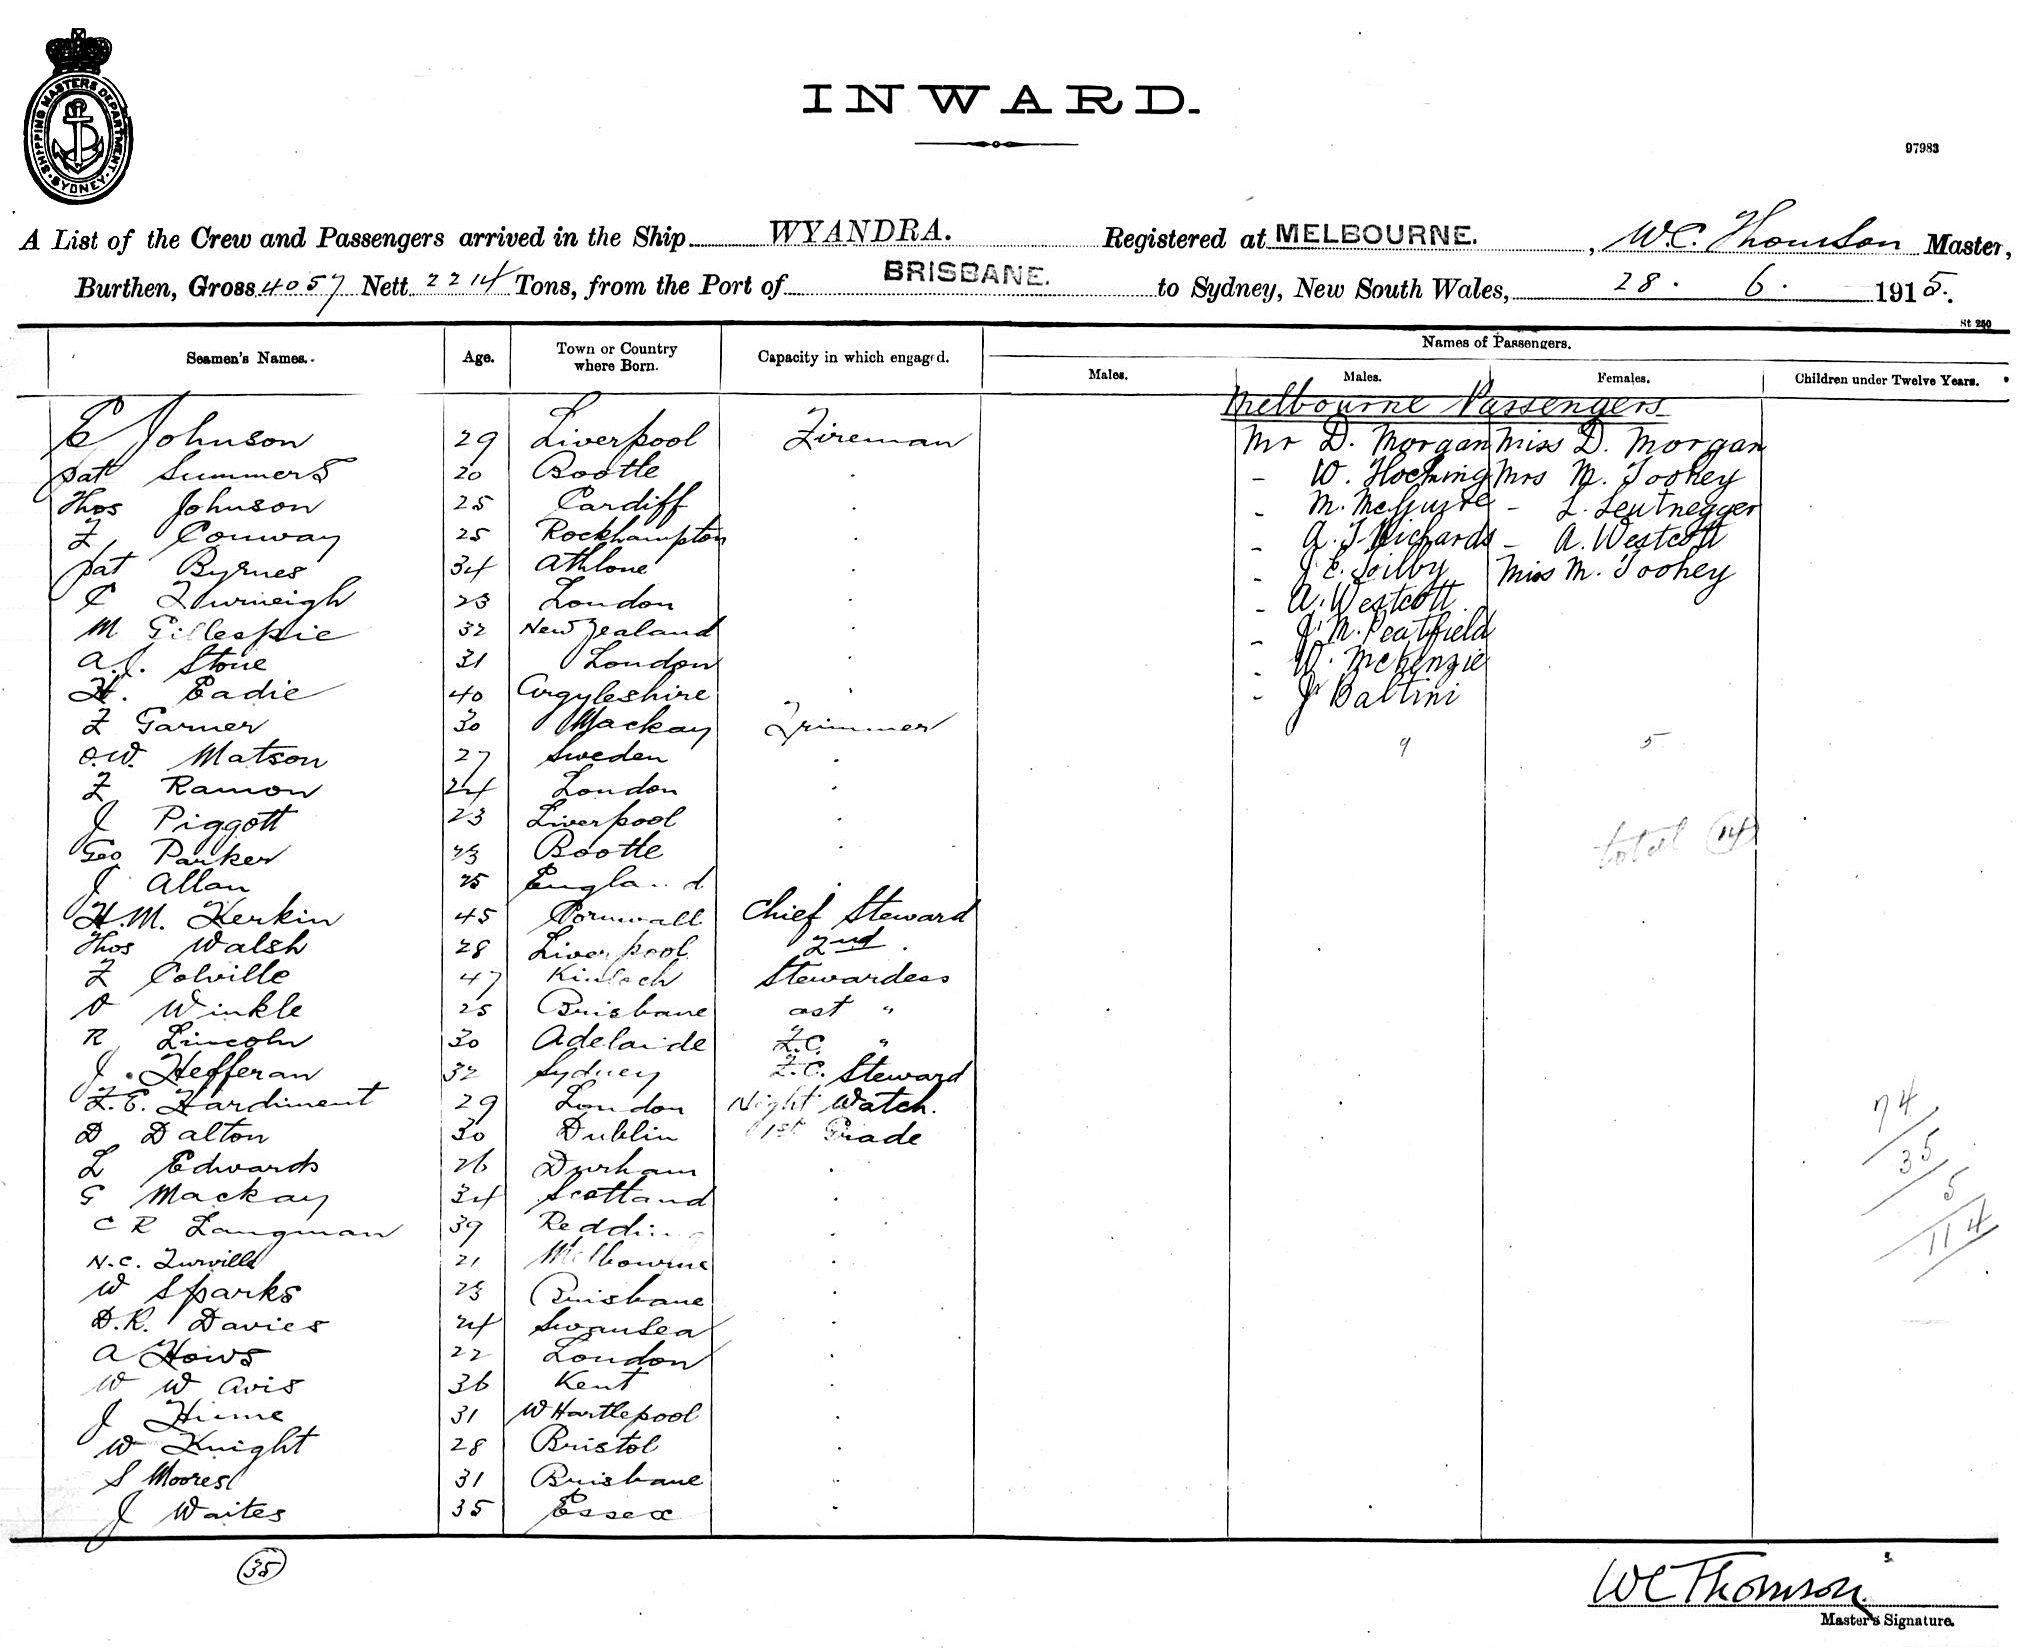 SHIPPING MASTERS DEPARTMENT. SYDNEY
INWARD.
97983
A List of the Crew and Passengers arrived in the Ship WYANDRA. Registered at MELBOURNE., W.C. Thomson Master,
Burthen, Gross 4057 Nett 2214 Tons, from the Port of BRISBANE. to Sydney, New South Wales, 28. 6. 1915.
St 250
Seamen's Names. Age. Town or Country where Born. Capacity in which engaged. Names of Passengers.
Males. Males. Females. Children under Twelve Years.
Melbourne Passengers
E Johnson 29 Liverpool Fireman Mr D. Morgan Miss D. Morgan
Pat Summers 20 Bootle . - W. Hocking Mrs M. Toohey
Thos Johnson 25 Cardiff . - M. McGuire - L. Leutnegger
F Conway 25 Rockhampton . - A. J. Richards - A. Westcott
Pat Byrnes 34 Athlone . - J E. Soilby Miss M. Toohey
C 23 London . - A. Westcott
M Gillespie 32 New Zealand . - J. M. Peatfield
A.J. Stone 31 London . - W. McKenzie
H. Eadie 40 Argyleshire . - J Baltini
F Garner 30 Mackay Trimmer
O.W. Matson 27 Sweden . 9 5
F Ramon 24 London .
J Piggott 23 Liverpool .
Geo Parker 23 Bootle . total 14
J Allan 25 England .
H.M. Kerkin 45 Cornwall Chief Steward
Thos Walsh 28 Liverpool 2nd .
F Colville 47 Stewardess
O Winkle 25 Brisbane ast "
R Lincoln 30 Adelaide F.C. "
J. Hefferan 32 Sydney F.C. Steward
F.E. Hardiment 29 London Night Watch.
D Dalton 30 Dublin 1st Grade
L Edwards 26 Durham .
G Mackay 34 Scotland .
C R Langman 39 Redding .
N.C. Turville 21 Melbourne .
W Sparks 23 Brisbane .
D.R. Davies 24 Swansea .
A Hows 22 London .
W W Avis 36 Kent .
J Hume 31 W Hartlepool .
W Knight 28 Bristol .
S Moores 31 Brisbane .
J Waites 35 Essex .
74
35
5
114
35
WC Thomson
Master's Signature.